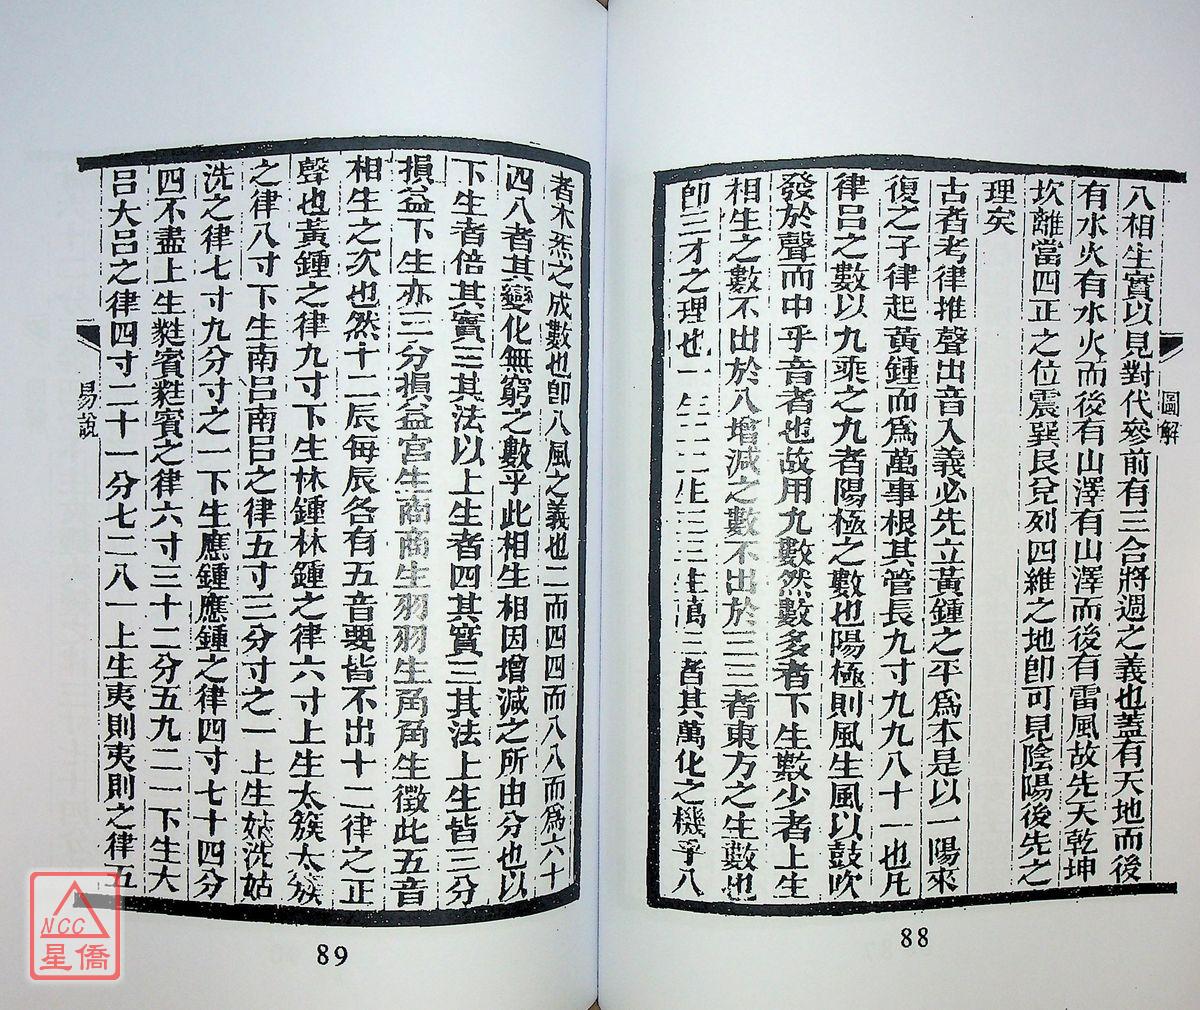 圖解
八相生實以見對代參前有三合將週之義也蓋有天地而後
有水火有水火而後有山澤有山澤而後有雷風故先天乾坤
坎離當四正之位震巽艮兌列四維之地卽可見陰陽後先之
理矣
古者考律推聲出音入義必先立黃鍾之平爲本是以一陽來
復之子律起黃鍾而爲萬事根其管長九寸九九八十一也凡
律呂之數以九乘之九者陽極之數也陽極則風生風以鼓吹
發於聲而中乎音者也故用九數然數多者下生數少者上生
相生之數不出於八增減之數不出於三三者東方之生數也
卽三才之理也一生二二生三三生萬三者其萬化之機乎八
88
者木炁之成數也卽八風之義也二而四四而八八而爲六十
四八者其變化無窮之數乎此相生相因增減之所由分也以
下生者倍其實三其法以上生者四其實三其法上生皆三分
損益下生亦三分損益宫生商商生羽羽生角角生徵此五音
相生之次也然十二辰每辰各有五音要皆不出十二律之正
聲也黃鍾之律九寸下生林鍾林鍾之律六寸上生太簇太簇
之律八寸下生南呂南呂之律五寸三分寸之一上生姑洗姑
洗之律七寸九分寸之一下生應鍾應鍾之律四寸七十四分
四不盡上生蕤賓蕤賓之律六寸三十二分五九二一下生大
呂大呂之律四寸二十一分七二八一上生夷則夷則之律五
易說
89
NCC
星僑